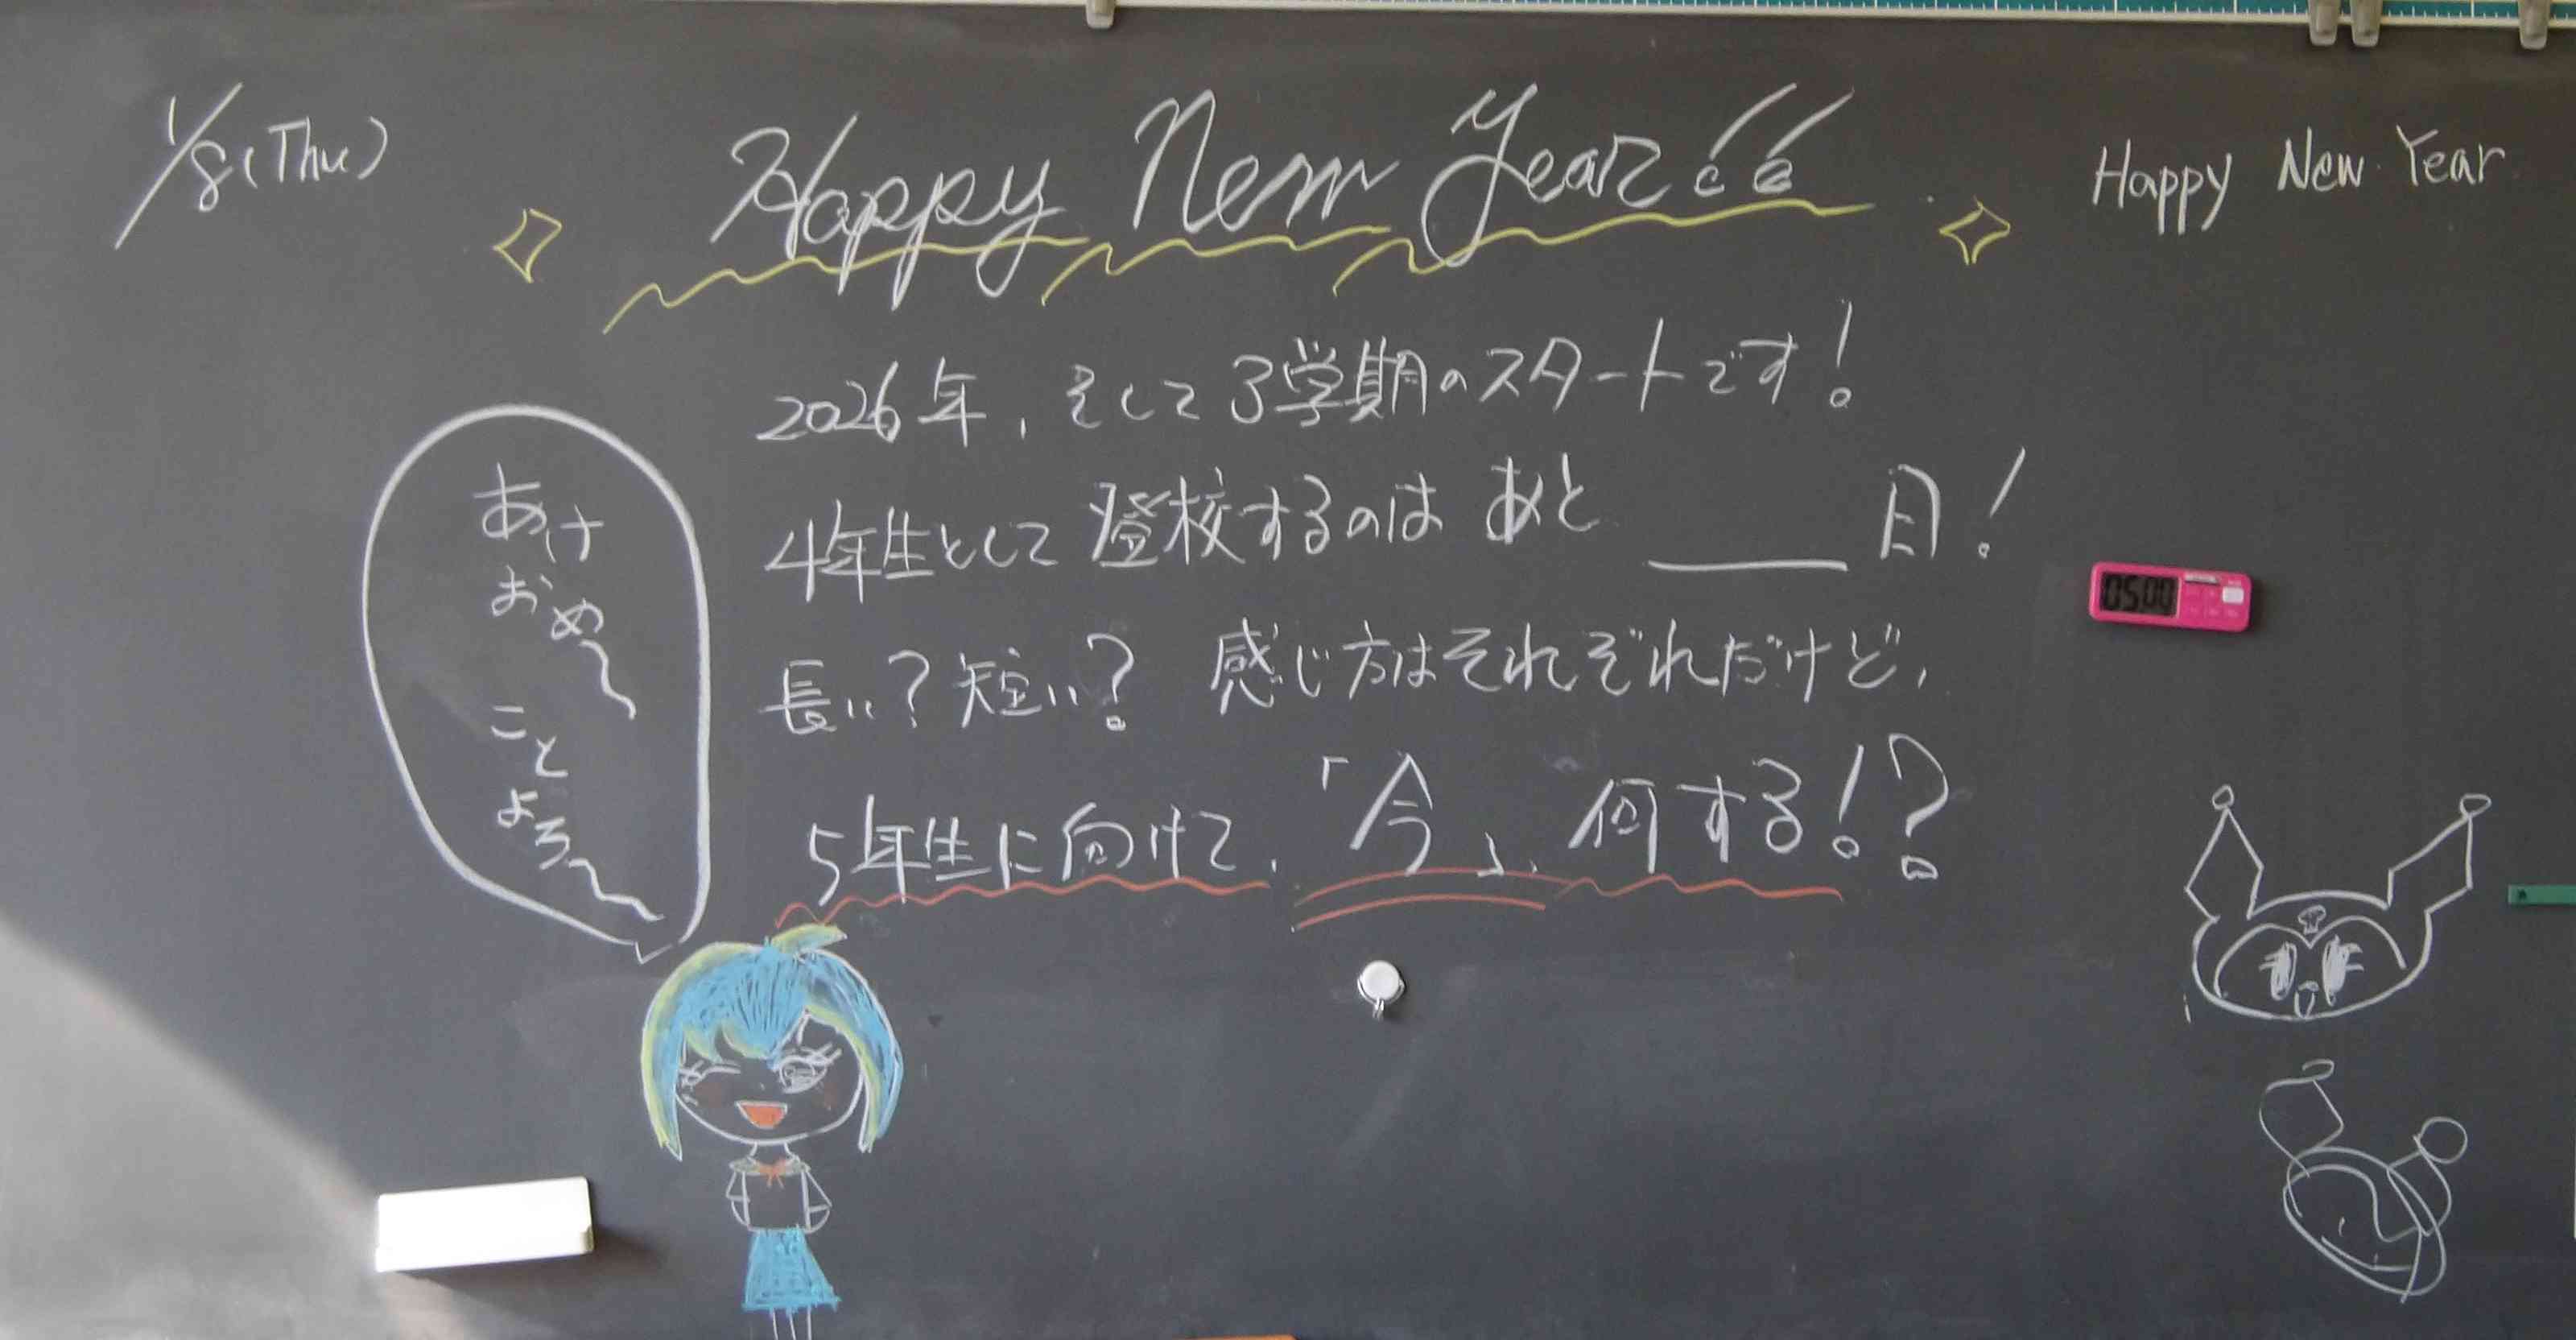 1/8(Thu)
Happy New Year!!
Happy New Year
2026年,そして3学期のスタートです!
4年生として登校するのは あと ____ 日!
長い?短い? 感じ方はそれぞれだけど,
5年生に向けて,「今」,何する!?
あけ
おめ〜
こと
よろ〜
05:00